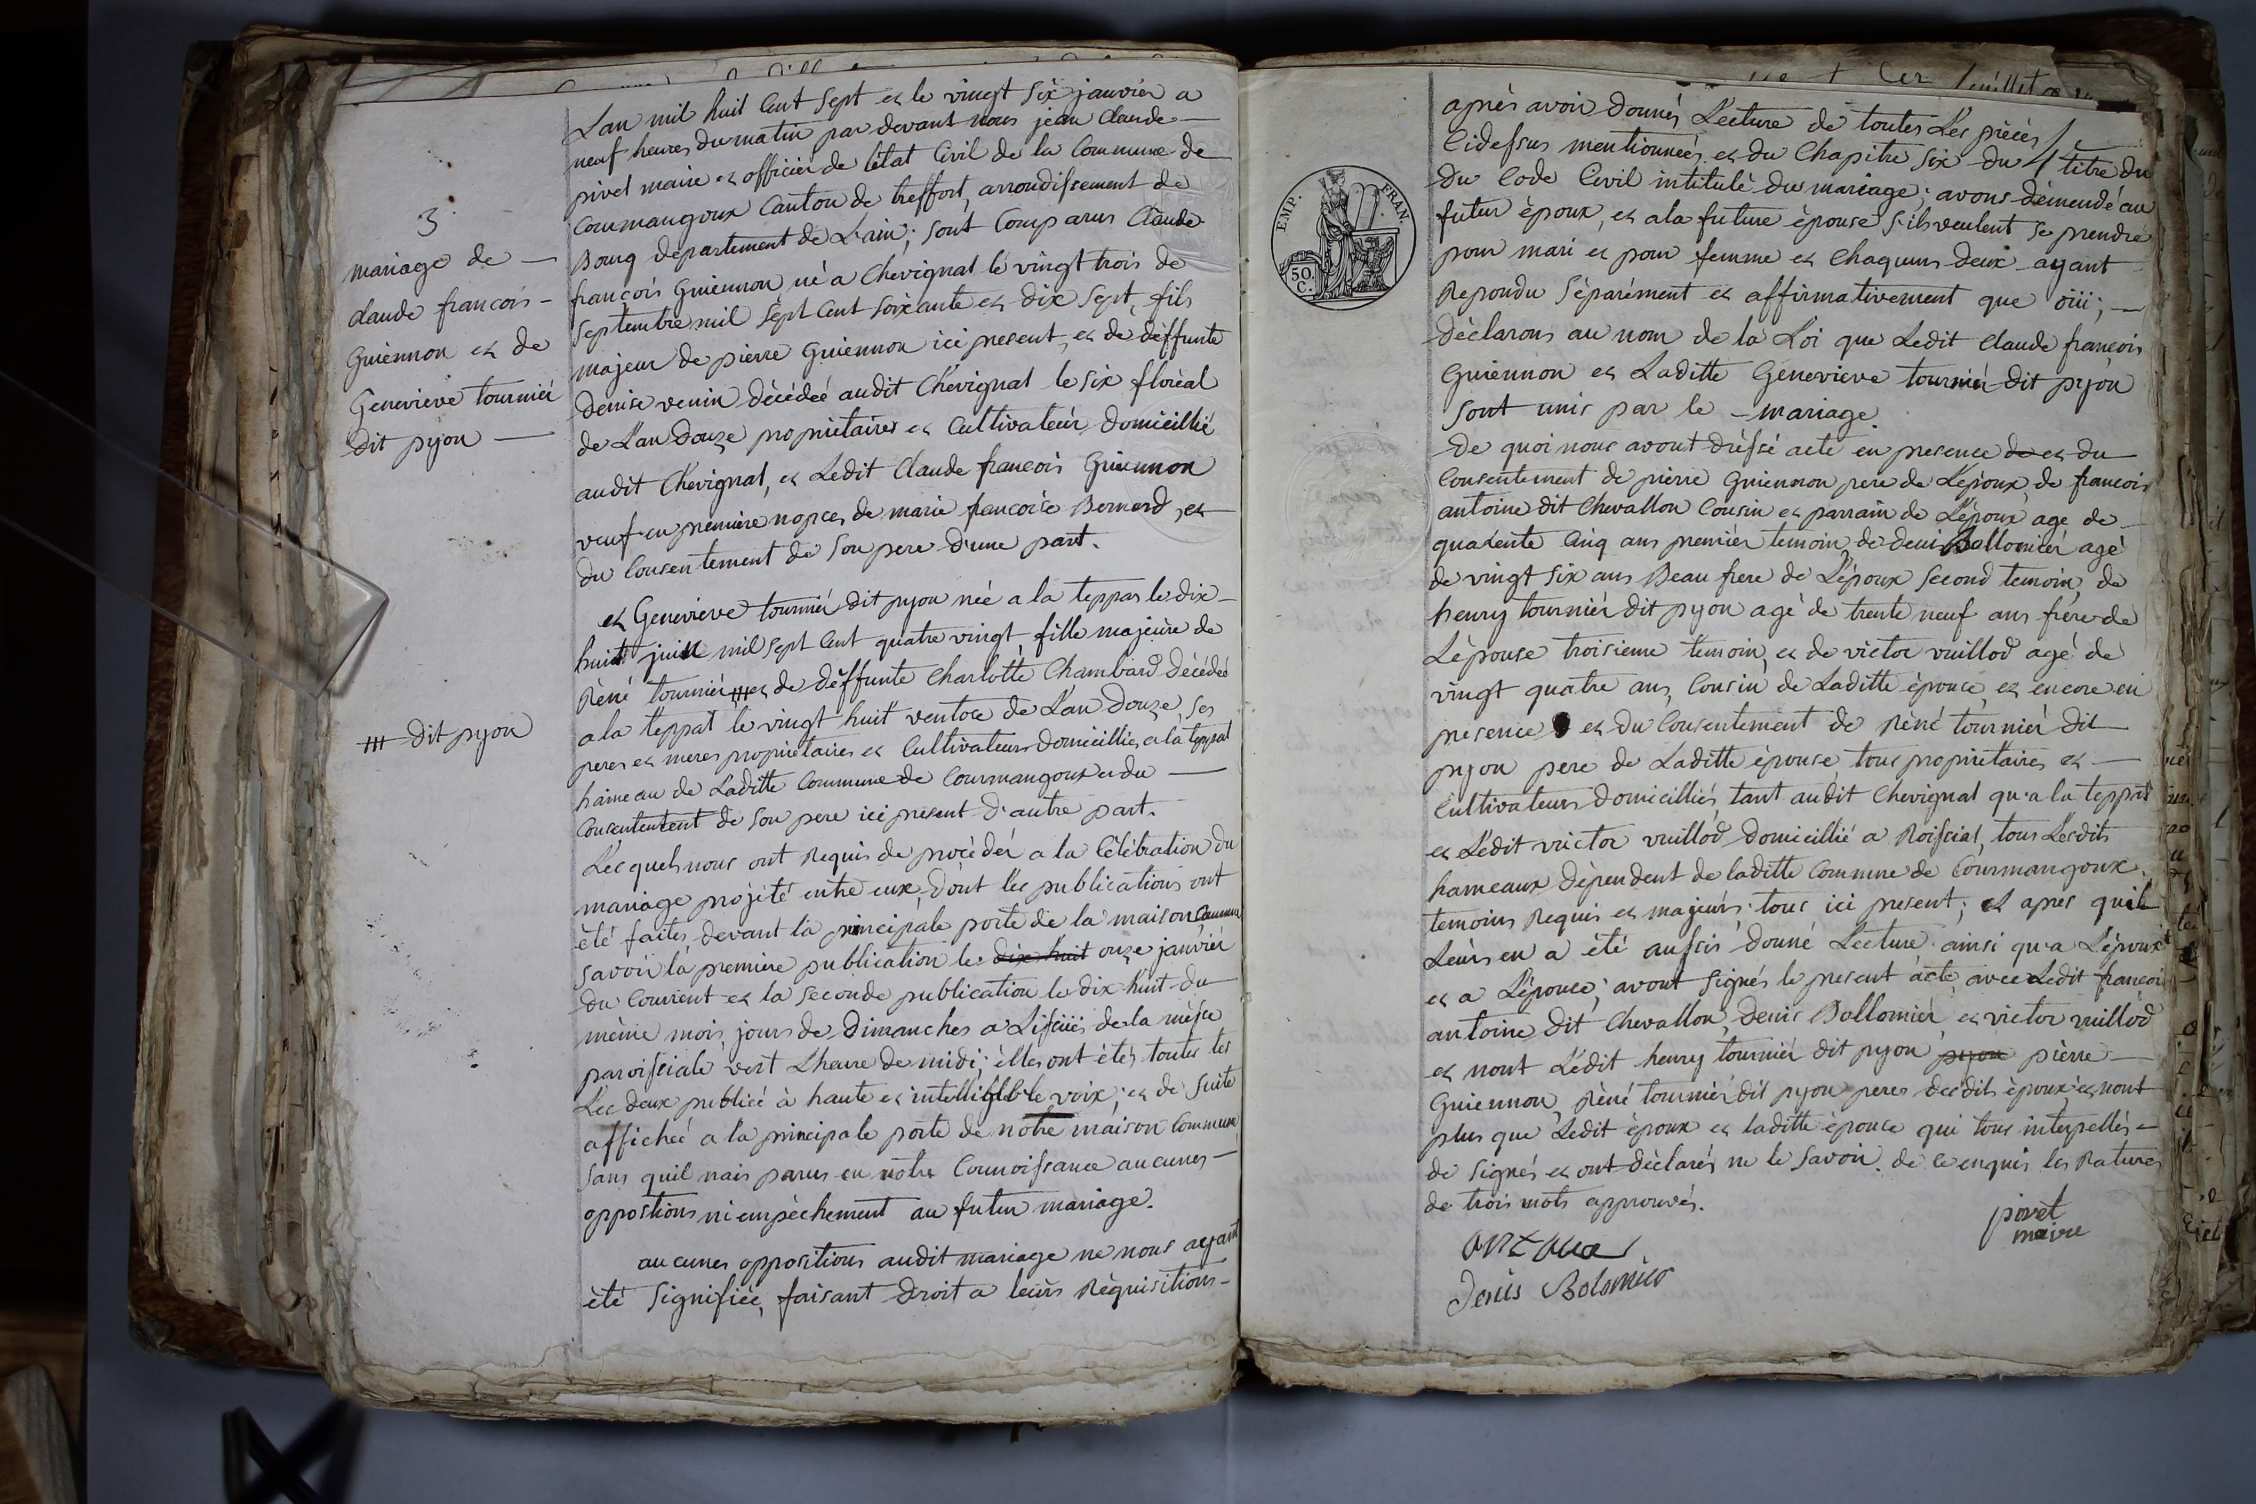 3
mariage de —
claude francois –
Guiennon et de
Genevieve tournier
dit pyon —
Lan mil huit Cent Sept et le vingt Six janvier a
neuf heures du matin par devant nous jean Claude —
pivet maire et officier de l'état Civil de la Commune de
Courmangoux Canton de treffort, arrondissement de
Bourg departement de L'ain; sont Comparus Claude
françois Guiennon né a Chevignat le vingt trois de
Septembre mil Sèpt Cent soixante et dix Sept, fils
majeur de pierre Guiennon ici present, et de deffunte
denise venin décédeé audit Chevignat le six floreal
de L'an Douze propriétaires et Cultivateur domicillié
audit Chevignat, et Ledit Claude francois Guiennon
veuf en premiere nopces de marie francoise Bernard, et
du Consentement de Son pere d'une part.
et Genevieve tournier dit pyon née a la teppas le dix –
huit juin mil Sept Cent quatre vingt, fille majeure de
Réné tournier et de deffunte Charlotte Chambard décédeé
a la teppat le vingt huit ventose de L'an Douze, ses
peres et meres propriétaires et Cultivateurs domicilliés a la teppat
hameau de Laditte Commune de Courmangoux et du —
Consentement de Son pere ici present d'autre part.
dit pyon
Lesquels nous ont Requis de procéder a la Célébration du
mariage projété entre eux, dont les publications ont
été faites devant la principale porte de la maison Commune
Savoir la premiere publication le dix huit onze janvier
du Courrent et la seconde publication le dix huit du
même mois, jours de Dimanches a L'issüë de la messe
paroissiale vert L'heure de midi; élles ont étés toutes les
Les deux publieé à haute et intelligible voix; et de Suite
afficheé a la principale porte de notre maison Commune
Sans quil nais parus en notre Connoissance aucunes –
oppostions ni empèchement au futur mariage.
aucunes oppositions audit mariage ne nous ayant
été Signifieé, faisant Droit a leurs Réquisitions –
EMP. FRAN.
50.
C.
après avoir donnés Lecture de toutes Les pièces
Cidessus mentionneés et du Chapitre Six du titre du
du Code Civil intitulé du mariage; avons démendé au
futur époux, et a la future épouse S'ils veulent se prendre
pour mari et pour femme et Chaquuns deux ayant
Repondu Séparément et affirmativement que oüi; —
déclarons au nom de la Loi que Ledit Claude francois
Guiennon et Laditte Genevieve tournier dit pyon
Sont unis par le – mariage.
De quoi nous avont dréssé acte en presence de et du
Consentement de pierre Guiennon pere de L'époux, de francois
antoine dit Chevallon Cousin et parrain de L'époux agé de –
quarente Cinq ans premier temoin, de denis Bollomier agé
de vingt Six ans Beau frere de L'époux Second temoin, de
henry tournier dit pyon agé de trente neuf ans frere de
L'épouse troisieme temoin, et de victor vuillod agé de
vingt quatre ans, Cousin de Laditte épouse, et encore en
presence et du Consentement de Réné tournier dit
pyon pere de Laditte épouse, tous propriétaires et —
Cultivateurs domicilliés, tant audit Chevignat qu'a la teppas
et Ledit victor vuillod domicillié a Roissiat, tous Lesdits
hameaux dépendent de laditte Commune de Courmangoux.
temoins Requis et majeurs tous ici present; et apres quil
Leurs en a été aussis donné Lecture ainsi qu'a L'époux
et a L'épouse; avont Signés le present acte avec Ledit francois
antoine dit Chevallon, Denis Bollomier et victor vuillod
et nont Ledit henry tournier dit pyon pyon pierre —
Guiennon, Réné tournier dit pyon peres desdits époux; et nont
plus que Ledit époux et laditte épouse qui tous interpellés –
de Signés et ont déclarés ne le Savoir. de ce enquis les Ratures
de trois mots approuvés.
pivet
maire
Denis Bolomier